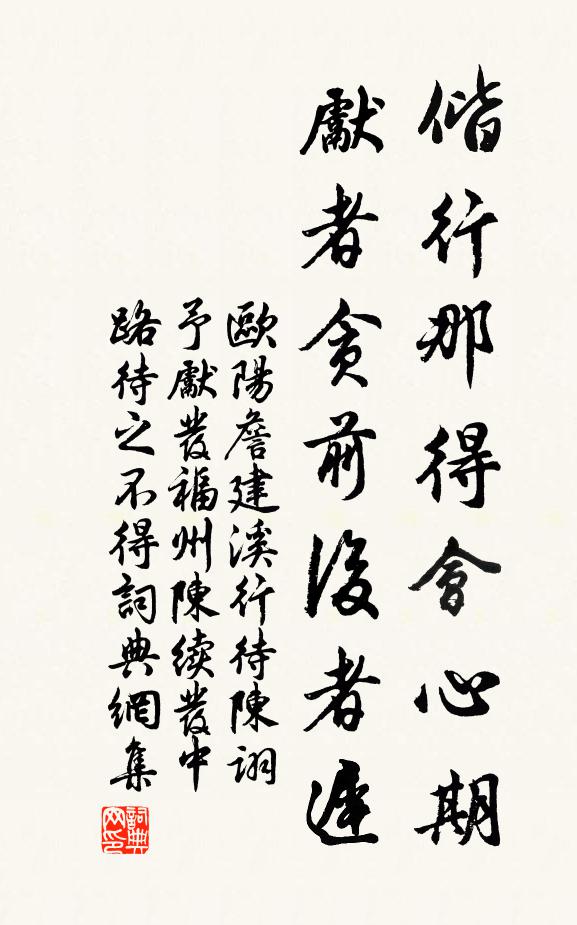 偕行那得會心期
獻者貪前後者遲
歐陽詹建溪行待陳詡
予獻發福州陳續發中
路待之不得詞典網集
詞典網印